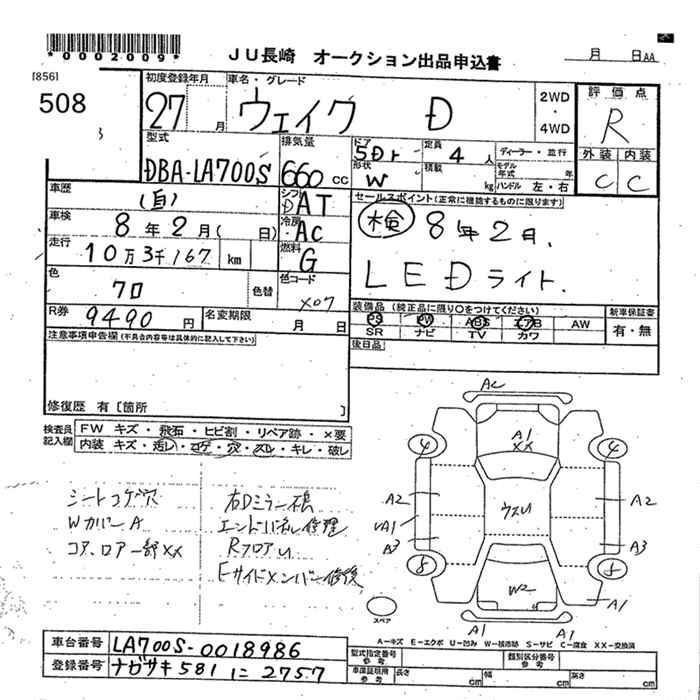 *0002009*
JU長崎 オークション出品申込書
月 日AA
[856]
508
初度登録年月
27
月
車名・グレード
ウェイク D
2WD
・
4WD
評価点
R
外装 内装
C C
型式
DBA-LA700S
排気量
660 CC
ドア
5Dr
形状
W
定員
4 人
積載
kg
ディーラー・並行
モデル年式 年
ハンドル 左・右
車歴
(自)
シフト
DAT
車検
8年2月( 日)
冷房
AC
走行
10万3千167 km
燃料
G
色
クロ
色替
色コード
X07
R券
9490 円
名変期限
月 日
セールスポイント(正常に機能するものに限ります)
検 8年2月.
LEDライト.
装備品 (純正品に限り○をつけてください)
PS PW ABS エアB AW
SR ナビ TV カワ
新車保証書
有・無
後日品
注意事項申告欄(不具合内容等は具体的に記入して下さい)
修復歴 有 [箇所 ]
検査員記入欄
FW キズ・飛石・ヒビ割・リペア跡・×要
内装 キズ・汚レ・コゲ・穴・スレ・キレ・破レ
シートコゲ穴
Wカバー A
コア、ロアー部XX
右Dミラー傷
エンドパネル修理
RフロアU
Eサイドメンバー修復
AC
A1
XX
4
4
A2
A2
UA1
ウスU
A3
A3
8
8
W2
A1
A1
A1
スペア
A-キズ E-エクボ U-凹み W-板跡 S-サビ C-腐食 XX-交換済
車台番号
LA700S-0018986
登録番号
ナガサキ 581 に 2757
型式指定番号
参考
類別区分番号
参考
車庫証明用
参考
長さ cm
幅 cm
高さ cm